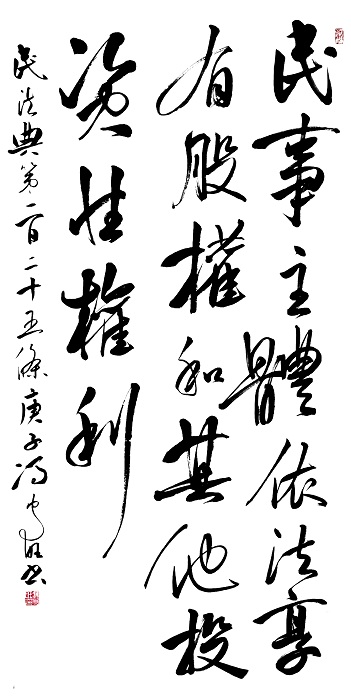 民事主體依法享
有股權和其他投
資性權利
民法典第一百二十五條庚子馮